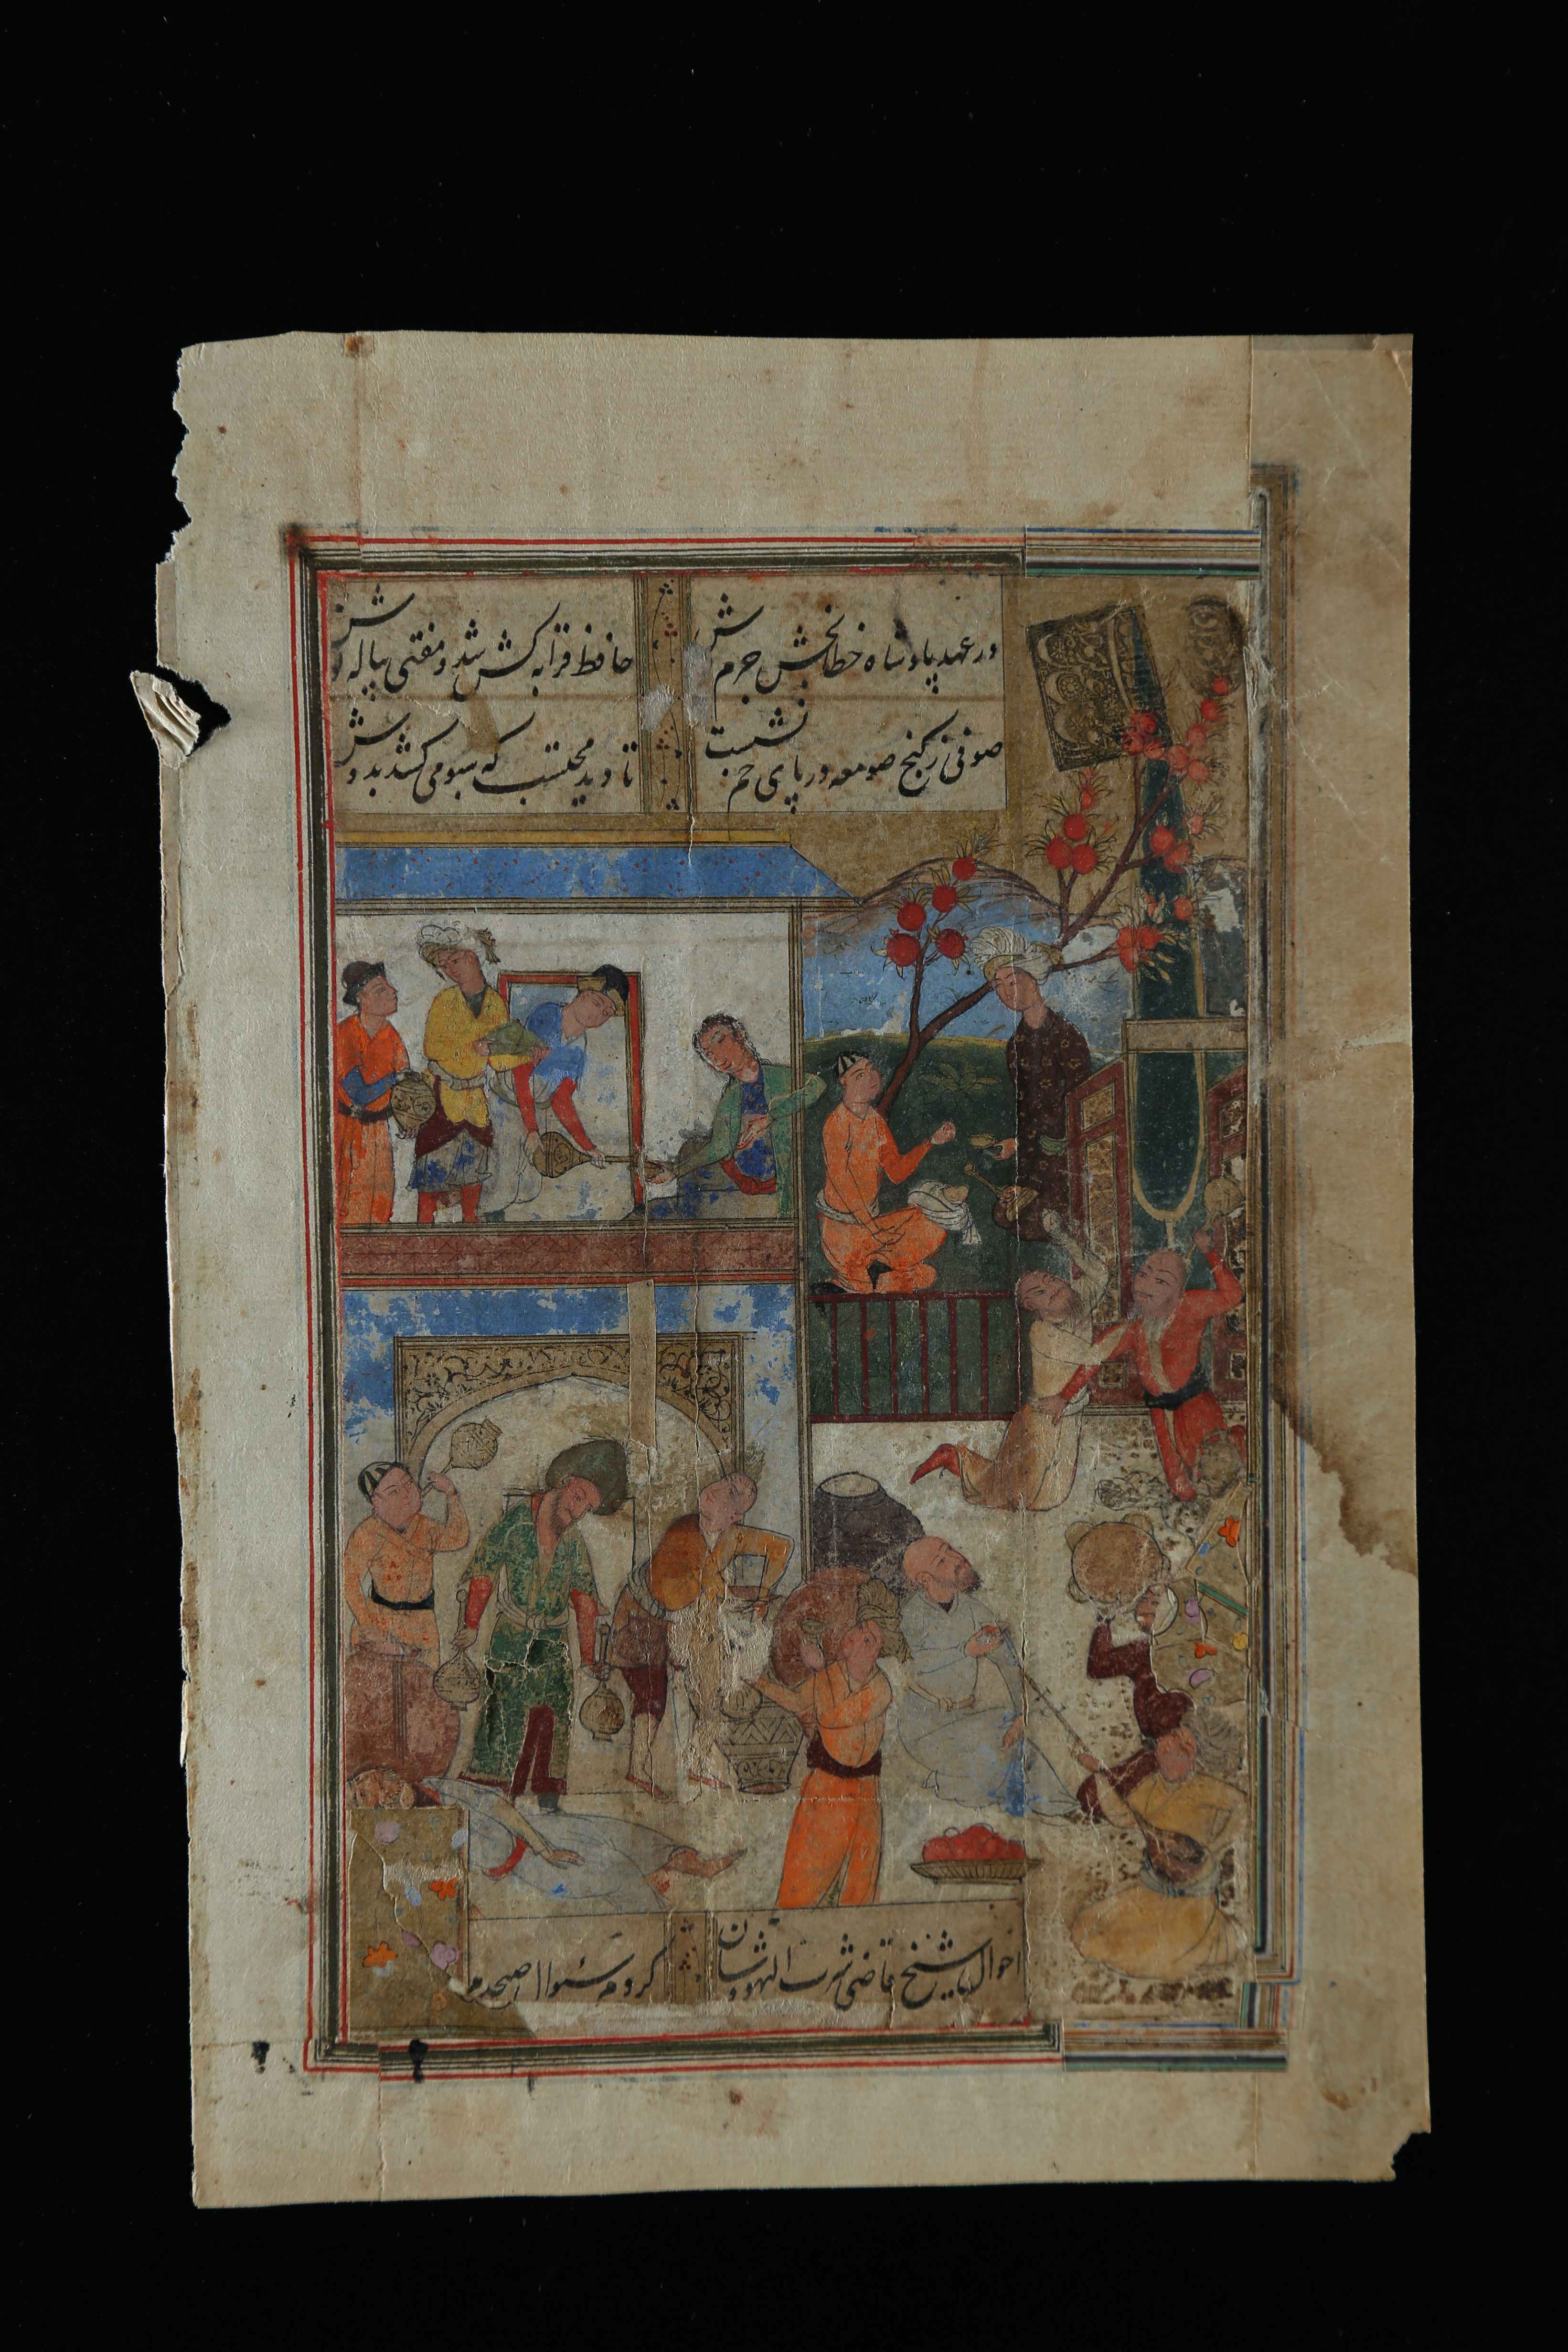 در عهد پادشاه خطابخش جرم پوش
حافظ قرابه کش شد و مفتی پیاله نوش
صوفی ز کنج صومعه در پای خم نشست
تا دید محتسب که سبو می کشد بدوش
احوال شیخ قاضی شرب الیهودشان
کردم سئوال صبحدم